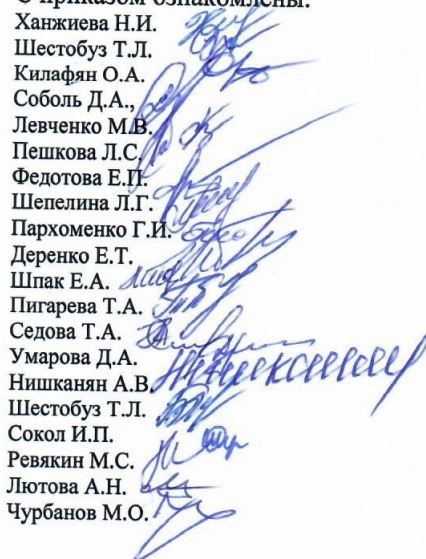 С приказом ознакомлены:
Ханжиева Н.И.
Шестобуз Т.Л.
Килафян О.А.
Соболь Д.А.,
Левченко М.В.
Пешкова Л.С.
Федотова Е.П.
Шепелина Л.Г.
Пархоменко Г.И.
Деренко Е.Т.
Шпак Е.А.
Пигарева Т.А.
Седова Т.А.
Умарова Д.А.
Нишканян А.В.
Шестобуз Т.Л.
Сокол И.П.
Ревякин М.С.
Лютова А.Н.
Чурбанов М.О.